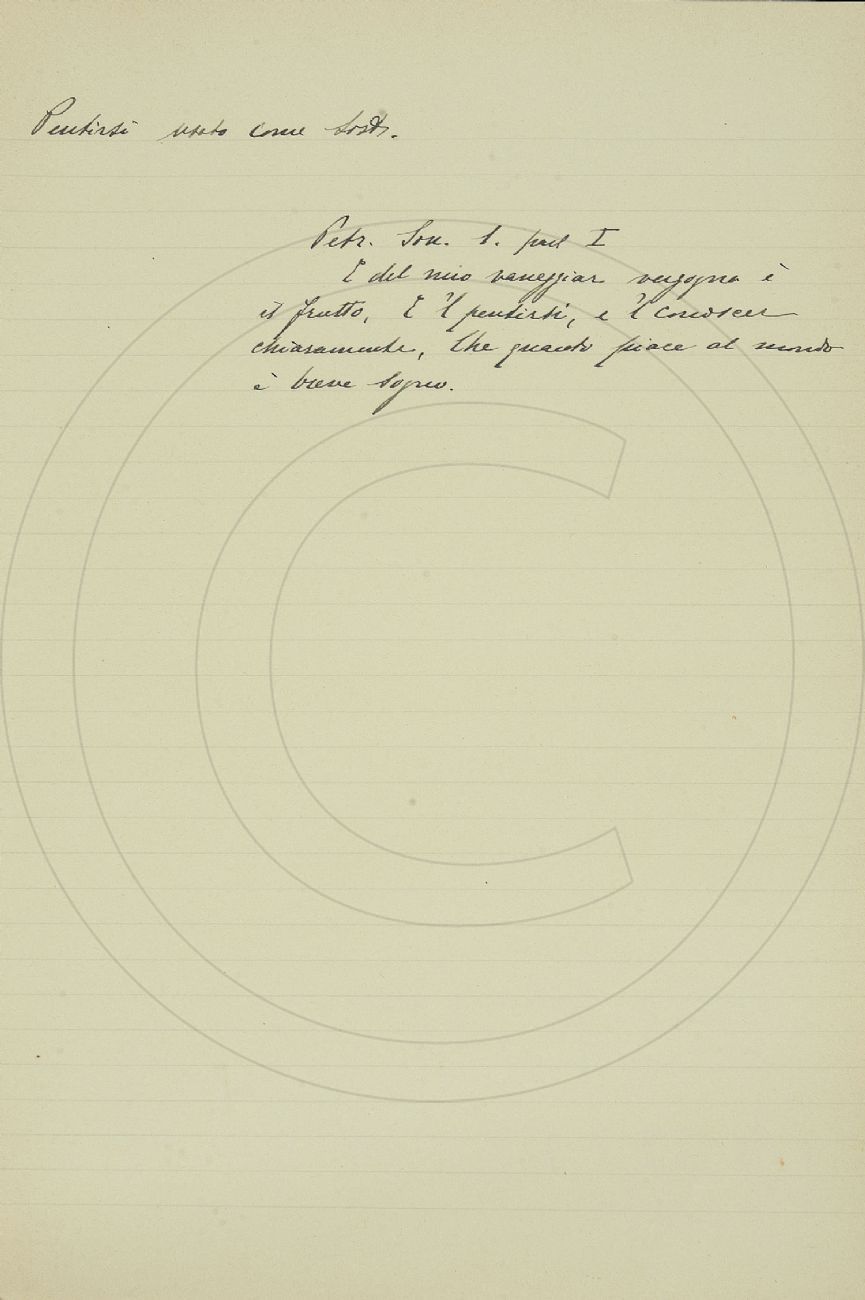 Pentirsi usato come sost.
Petr. Son. 1. part I
E del mio vaneggiar vergogna è
il frutto, E 'l pentirsi, e 'l conoscer
chiaramente, Che quanto piace al mondo
è breve sogno.